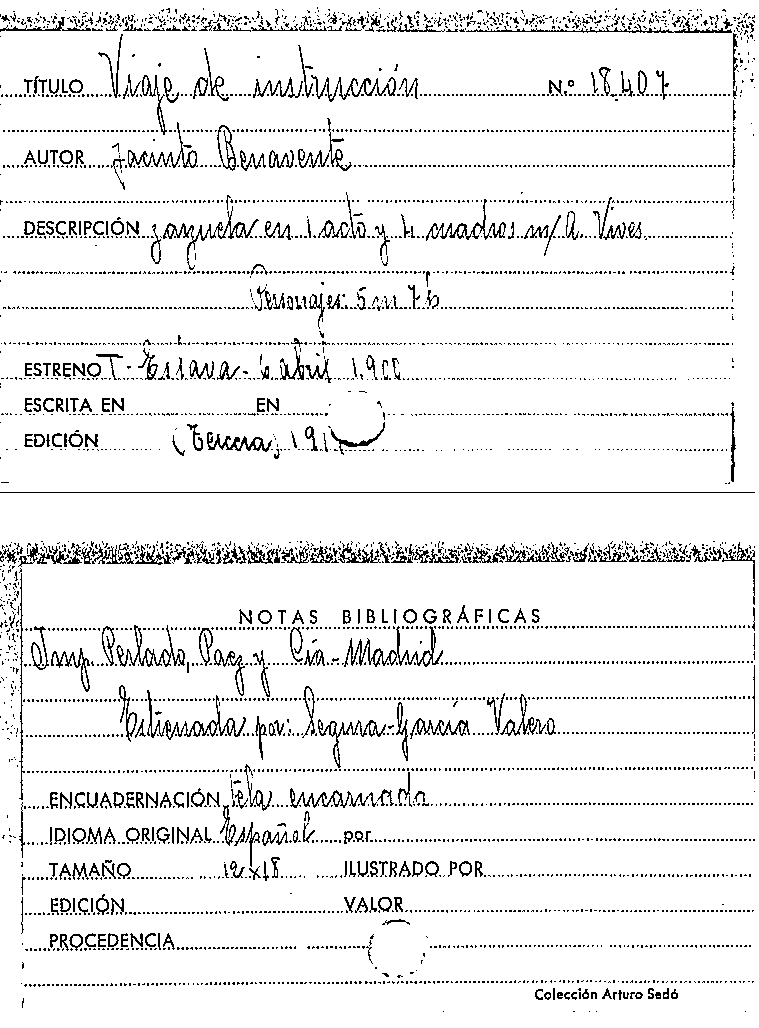 TÍTULO Viaje de instrucción N.º 18.407
AUTOR Jacinto Benavente
DESCRIPCIÓN zarzuela en 1 acto y 4 cuadros m/ A. Vives
Personajes: 5 m 7 h
ESTRENO T. Eslava - 6 abril 1.900
ESCRITA EN EN
EDICIÓN (Tercera)
NOTAS BIBLIOGRÁFICAS
Imp. Perlado, Paez y Cía - Madrid
Estrenada por: Segura - García Valero
ENCUADERNACIÓN tela encarnada
IDIOMA ORIGINAL Español por
TAMAÑO 12 x 18 ILUSTRADO POR
EDICIÓN VALOR
PROCEDENCIA
Colección Arturo Sedó